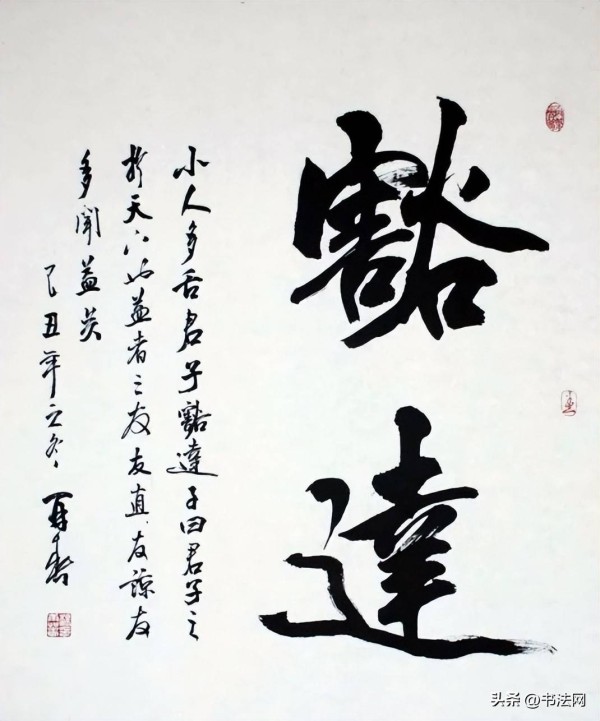 豁達
小人多舌君子豁達子曰君子之
於天下也益者三友友直友諒友
多聞益矣
己丑年之冬
头条 @书法网